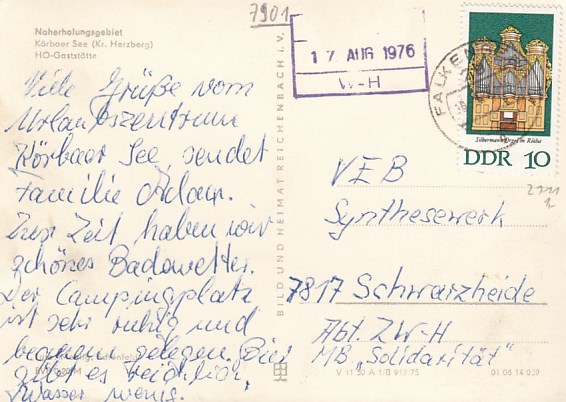 7901
Naherholungsgebiet
Körbaer See (Kr. Herzberg)
HO-Gaststätte
Viele Grüße vom
Urlautszentrum
Körbaer See, sendet
Familie Adam.
Zur Zeit haben wir
schönes Badewetter.
Der Campingplatz
ist sehr ruhig und
bequem gelegen. Bier
gibt es reichlich,
Wasser wenig.
BILD UND HEIMAT REICHENBACH i. V.
17 AUG 1976
W-H
FALKEN
Silbermann-Orgel in Rötha
DDR 10
VEB
Synthesewerk
7817 Schwarzheide
Abt. ZW-H
MB "Solidarität"
V 11 50 A 1/B 913/75
01 06 14 039